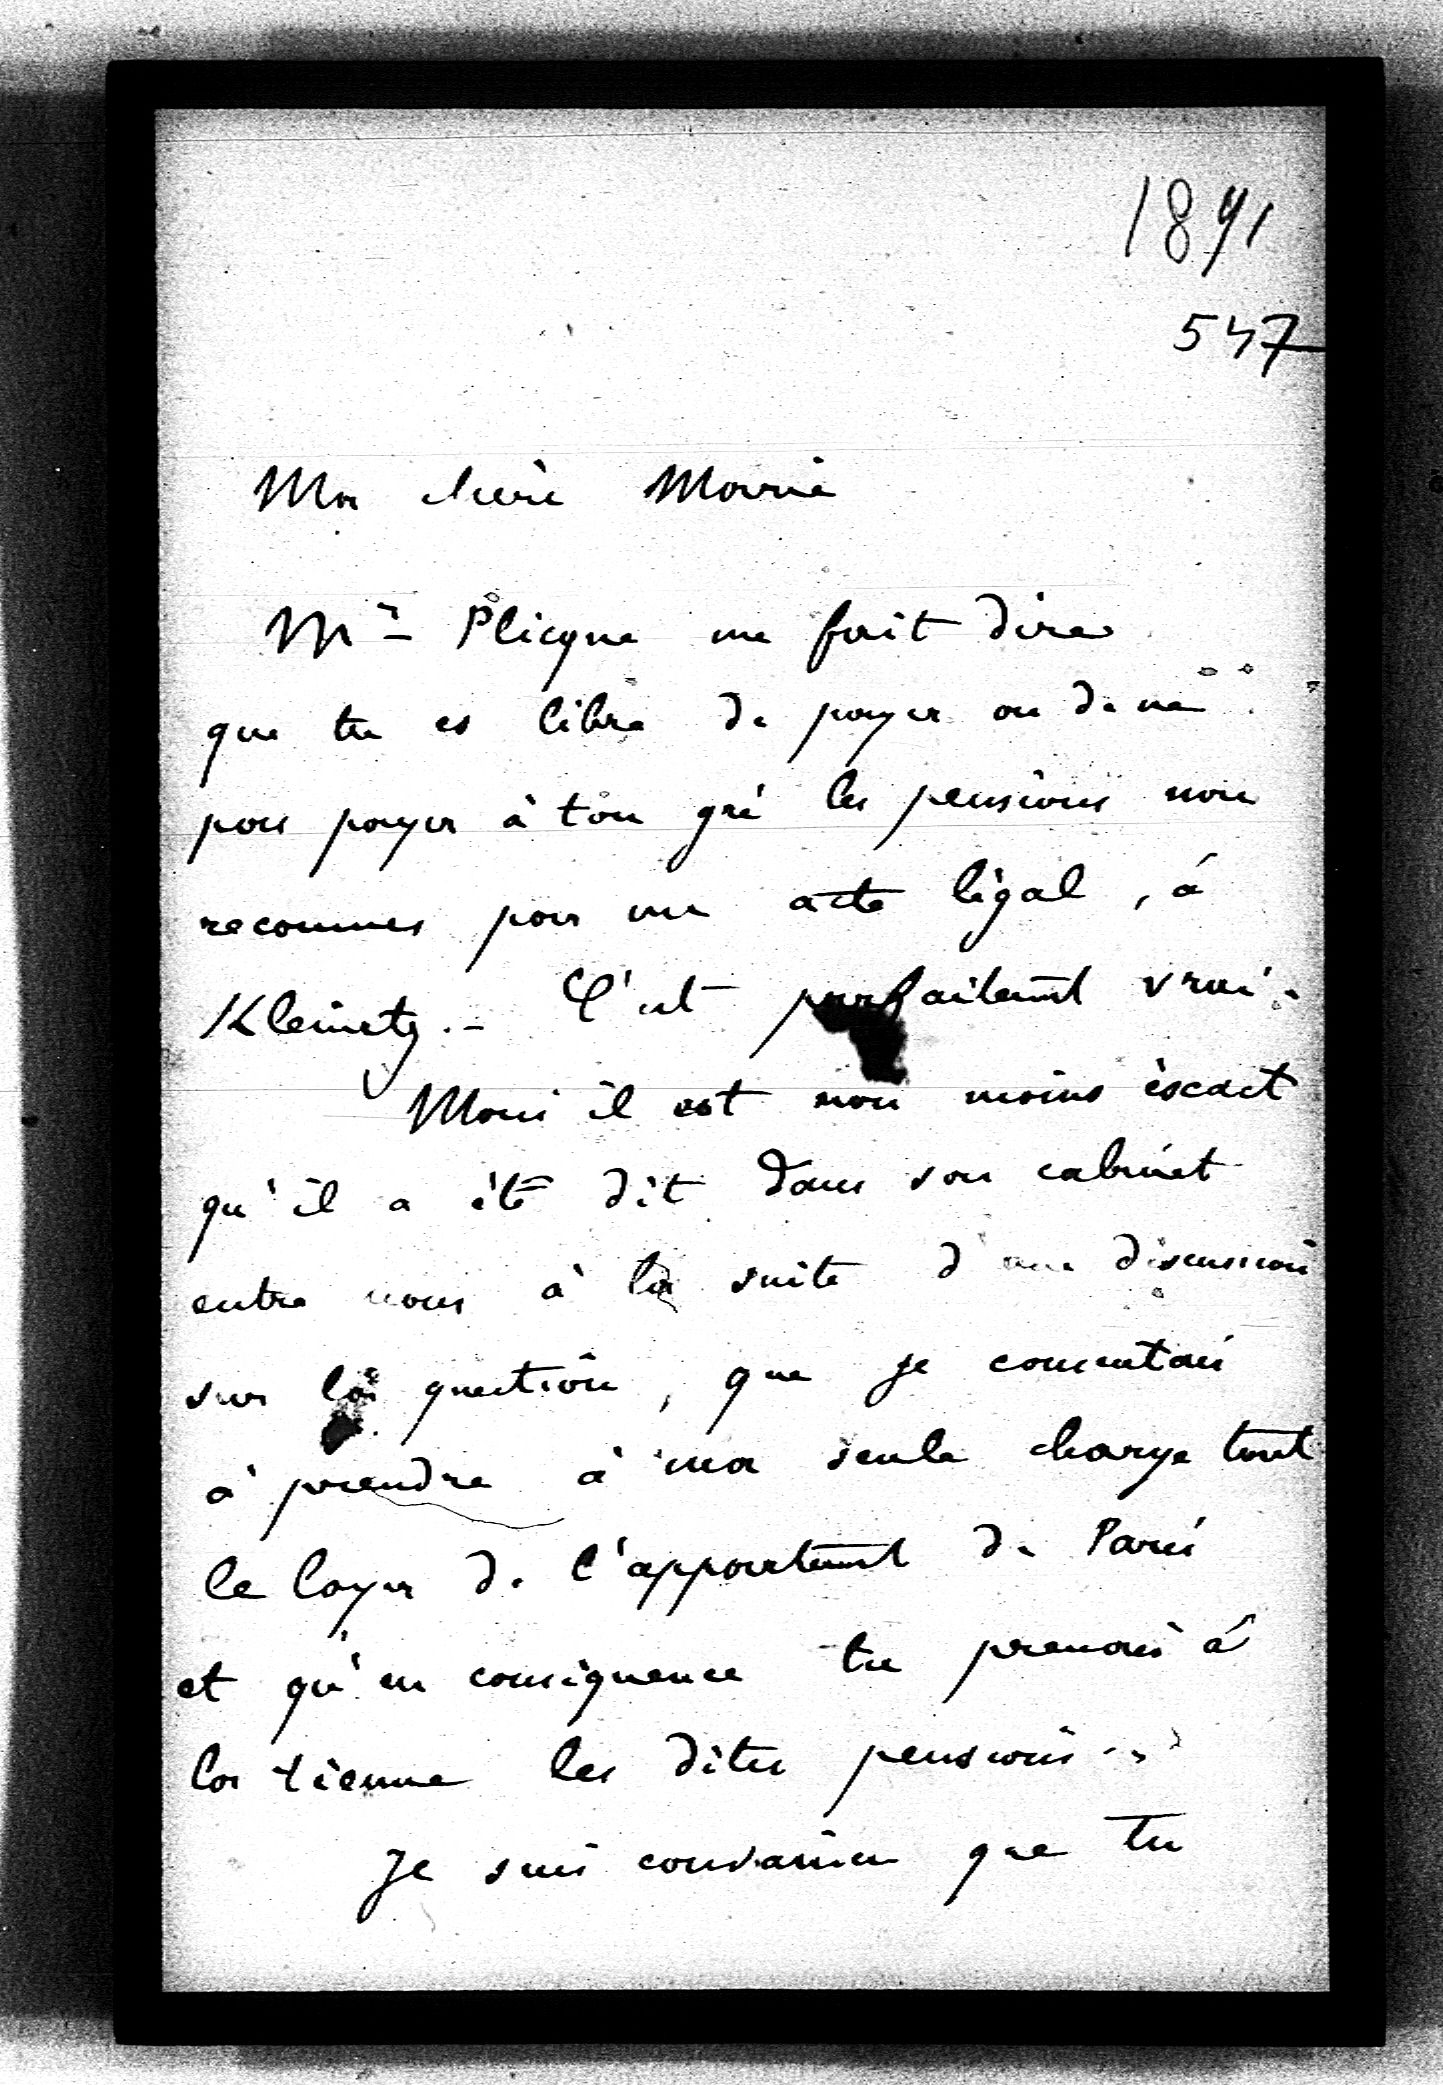 1891
547
Ma chère Marie
Mr Plicque me fait dire
que tu es libre de payer ou de ne
pas payer à ton gré les pensions non
reconnues par un acte légal, à
Kleinetz. - C'est parfaitement vrai. -
Mais il est non moins éxact
qu'il a été dit dans son cabinet
entre nous à la suite d'une discussion
sur la question, que je consentais
à prendre à ma seule charge tout
le loyer de l'appartement de Paris
et qu'en conséquence tu prenais à
la tienne les dites pensions. -
Je suis convaincu que tu